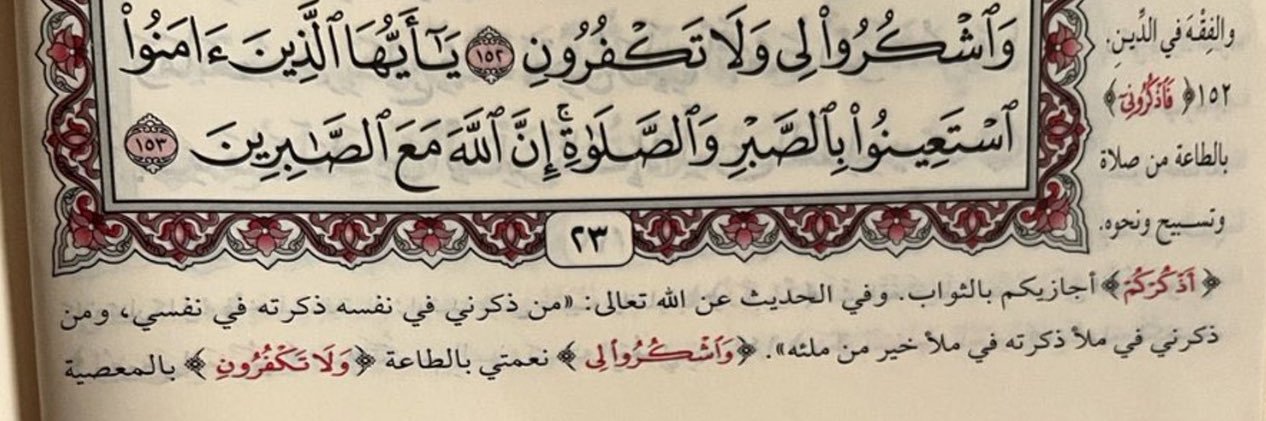 وَٱشۡكُرُواْ لِي وَلَا تَكۡفُرُونِ ١٥٢ يَٰٓأَيُّهَا ٱلَّذِينَ ءَامَنُواْ
ٱسۡتَعِينُواْ بِٱلصَّبۡرِ وَٱلصَّلَوٰةِۚ إِنَّ ٱللَّهَ مَعَ ٱلصَّٰبِرِينَ ١٥٣
٢٣
والفِقْهَ في الدِّينِ.
١٥٢﴿فَٱذۡكُرُونِيٓ﴾
بالطاعة من صلاة
وتسبيح ونحوه.
﴿أَذۡكُرۡكُمۡ﴾ أجازيكم بالثواب. وفي الحديث عن الله تعالى: «من ذكرني في نفسه ذكرته في نفسي، ومن
ذكرني في ملأ ذكرته في ملأ خير من ملئه». ﴿وَٱشۡكُرُواْ لِي﴾ نعمتي بالطاعة ﴿وَلَا تَكۡفُرُونِ﴾ بالمعصية